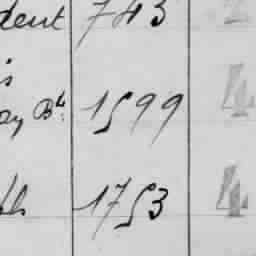 dent 743 2
is
ay Bk. 1599 4
th 1753 4